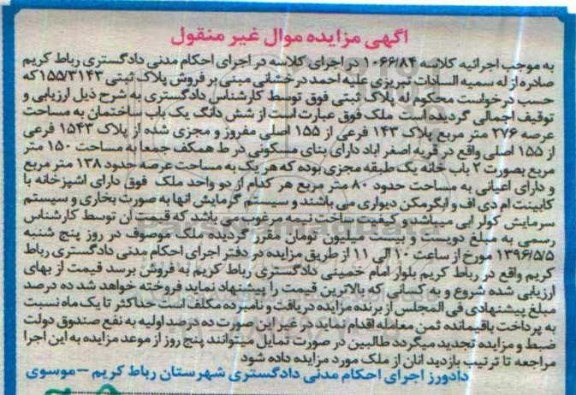 آگهی مزایده موال غیر منقول
به موجب اجرائیه کلاسه ۱۰۶۶/۸۴ در اجرای کلاسه در اجرای احکام مدنی دادگستری رباط کریم
صادره از له سمیه السادات تبریزی علیه احمد درخشانی مبنی بر فروش پلاک ثبتی ۱۵۵/۳۱۴۳ که
حسب درخواست محکوم له پلاک ثبتی فوق توسط کارشناس دادگستری به شرح ذیل ارزیابی و
توقیف اجمالی گردیده است. ملک فوق عبارت است از شش دانگ یک باب ساختمان به مساحت
عرصه ۲۷۶ متر مربع پلاک ۱۴۳ فرعی از ۱۵۵ اصلی مفروز و مجزی شده از پلاک ۱۵۴۳ فرعی
از ۱۵۵ اصلی واقع در قریه اصغر آباد دارای بنای مسکونی در ط همکف جمعا به مساحت ۱۵۰ متر
مربع بصورت ۲ باب خانه یک طبقه مجزی بوده که هر یک به مساحت عرصه حدود ۱۳۸ متر مربع
و دارای اعیانی به مساحت حدود ۸۰ متر مربع هر کدام از دو واحد ملک فوق دارای آشپزخانه با
کابینت ام دی اف و آبگرمکن دیواری می باشند و سیستم گرمایش آنها به صورت بخاری و سیستم
سرمایش کولر آبی میباشد و کیفیت ساخت نیمه مرغوب می باشد که قیمت آن توسط کارشناس
رسمی به مبلغ دویست و بیست میلیون تومان مقرر گردیده ملک موصوف در روز پنج شنبه
۱۳۹۶/۵/۵ مورخ از ساعت ۱۰ الی ۱۱ از طریق مزایده در دفتر اجرای احکام مدنی دادگستری رباط
کریم واقع در رباط کریم بلوار امام خمینی دادگستری رباط کریم به فروش برسد قیمت از بهای
ارزیابی شده شروع و به کسانی که بالاترین قیمت را پیشنهاد نماید فروخته خواهد شد ده درصد
مبلغ پیشنهادی فی المجلس از برنده مزایده دریافت و نامبرده مکلف است حداکثر تا یک ماه نسبت
به پرداخت باقیمانده ثمن معامله اقدام نماید در غیر این صورت ده درصد اولیه به نفع صندوق دولت
ضبط و مزایده تجدید میگردد طالبین در صورت تمایل میتوانند پنج روز از موعد مزایده به این اجرا
مراجعه تا ترتیب بازدید آنان از ملک مورد مزایده داده شود
دادورز اجرای احکام مدنی دادگستری شهرستان رباط کریم – موسوی